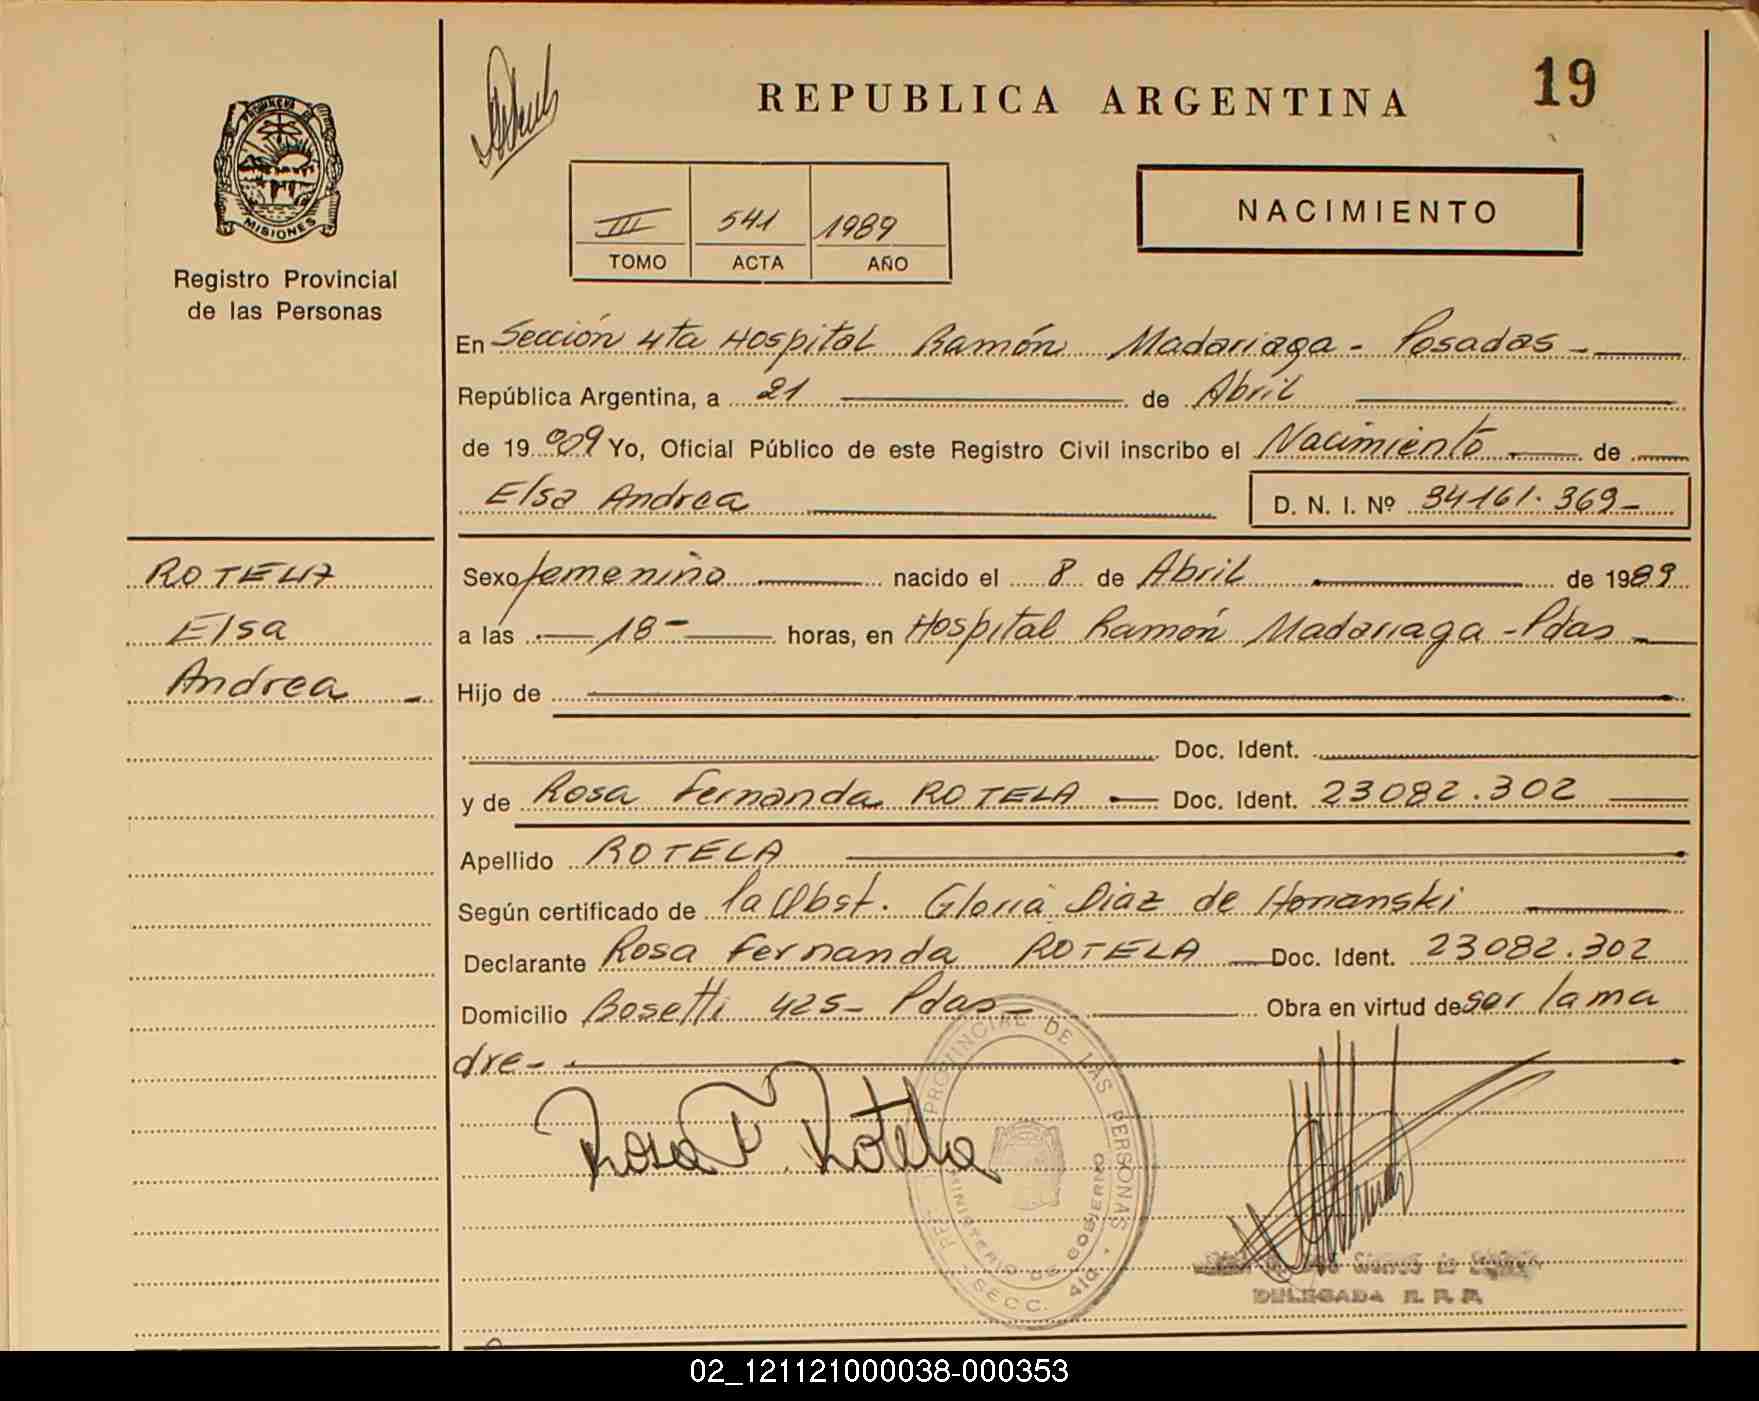 REPUBLICA ARGENTINA
19
PROVINCIA DE
MISIONES
Registro Provincial
de las Personas
III 541 1989
TOMO ACTA AÑO
NACIMIENTO
En Sección 4ta Hospital Ramón Madariaga - Posadas -
República Argentina, a 21 de Abril
de 19 Yo, Oficial Público de este Registro Civil inscribo el Nacimiento de
Elsa Andrea D. N. I. Nº 34161.369-
ROTELA
Elsa
Andrea -
Sexo femenino nacido el 8 de Abril de 1989
a las 18- horas, en Hospital Ramón Madariaga - Pdas -
Hijo de
Doc. Ident.
y de Rosa Fernanda ROTELA - Doc. Ident. 23082.302
Apellido ROTELA
Según certificado de la Obst. Gloria Diaz de
Declarante Rosa Fernanda ROTELA - Doc. Ident. 23082.302
Domicilio Bosetti 425- Pdas - Obra en virtud de ser la ma
dre -
Rosa F. Rotela
PROVINCIAL DE LAS PERSONAS
MINISTERIO DE GOBIERNO
SECC. 4ta.
DELEGADA R. P. P.
02_121121000038-000353